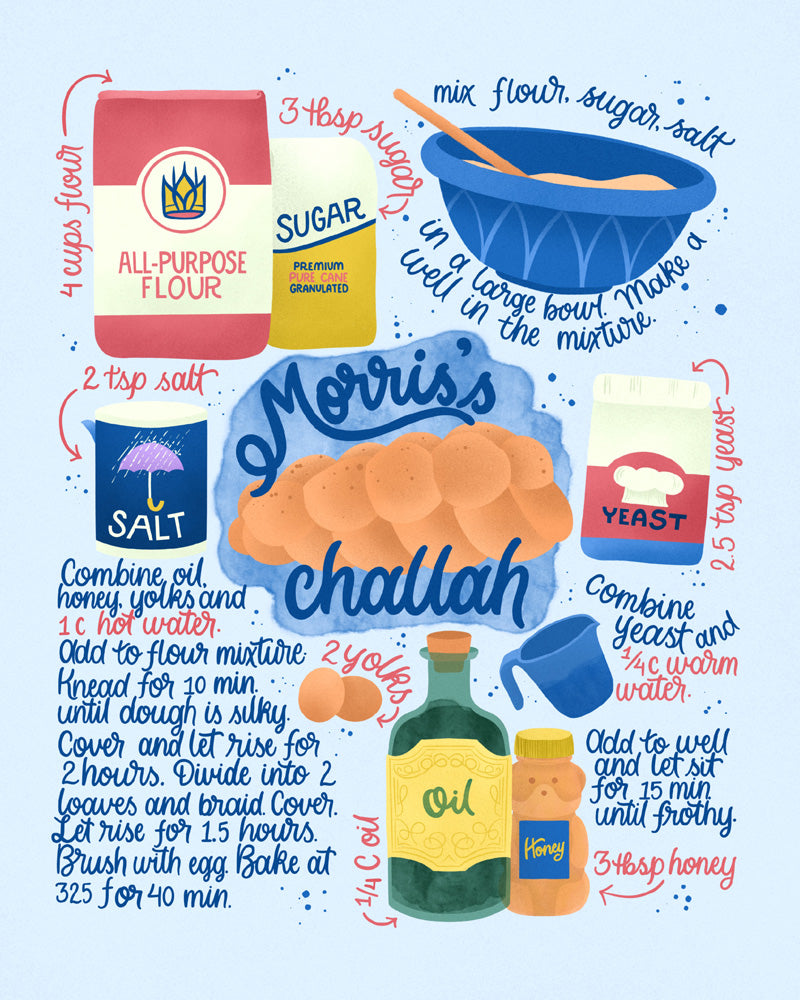 4 cups flour
ALL-PURPOSE
FLOUR
3 tbsp sugar
SUGAR
PREMIUM
PURE CANE
GRANULATED
mix flour, sugar, salt
in a large bowl. Make a
well in the mixture.
2 tsp salt
SALT
Morris's
challah
2.5 tsp yeast
YEAST
Combine
yeast and
1/4 c warm
water.
Add to well
and let sit
for 15 min
until frothy.
Combine oil,
honey, yolks and
1 c hot water.
Add to flour mixture.
Knead for 10 min.
until dough is silky.
Cover and let rise for
2 hours. Divide into 2
loaves and braid. Cover.
Let rise for 1.5 hours.
Brush with egg. Bake at
325 for 40 min.
2 yolks
1/4 C oil
Oil
Honey
3 tbsp honey